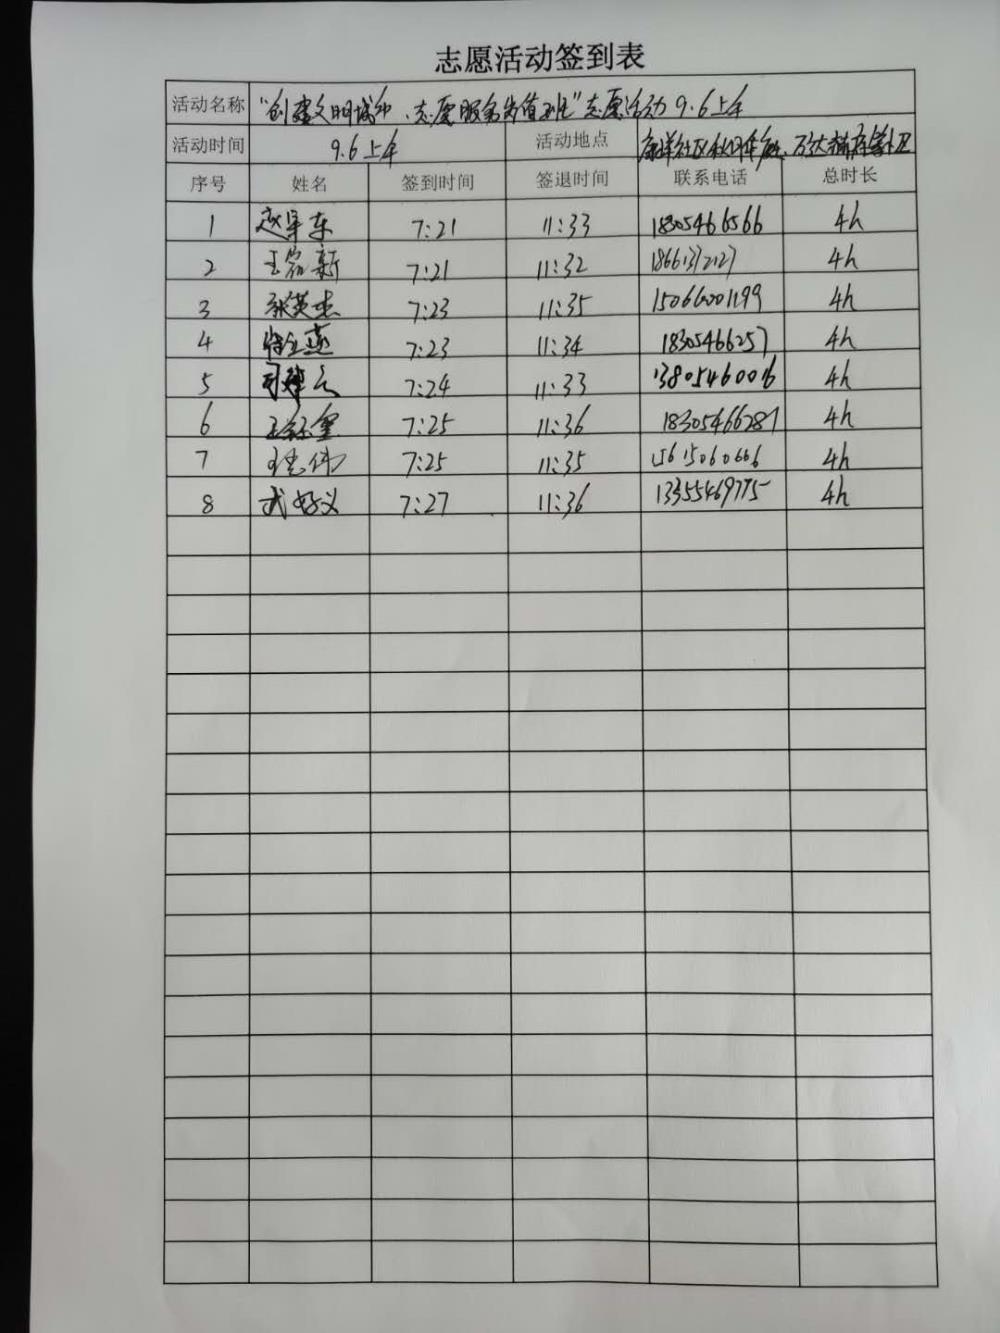 志愿活动签到表
活动名称 "创建文明城市、志愿服务先值班"志愿活动 9.6上午
活动时间 9.6上午 活动地点
序号 姓名 签到时间 签退时间 联系电话 总时长
1 7:21 11:33 18305466566 4h
2 7:21 11:32 18661372127 4h
3 张英杰 7:23 11:35 15066001199 4h
4 7:23 11:34 18305466257 4h
5 7:24 11:33 13805460016 4h
6 7:25 11:36 18305466287 4h
7 7:25 11:35 15615060666 4h
8 武好义 7:27 11:36 13355469775 4h